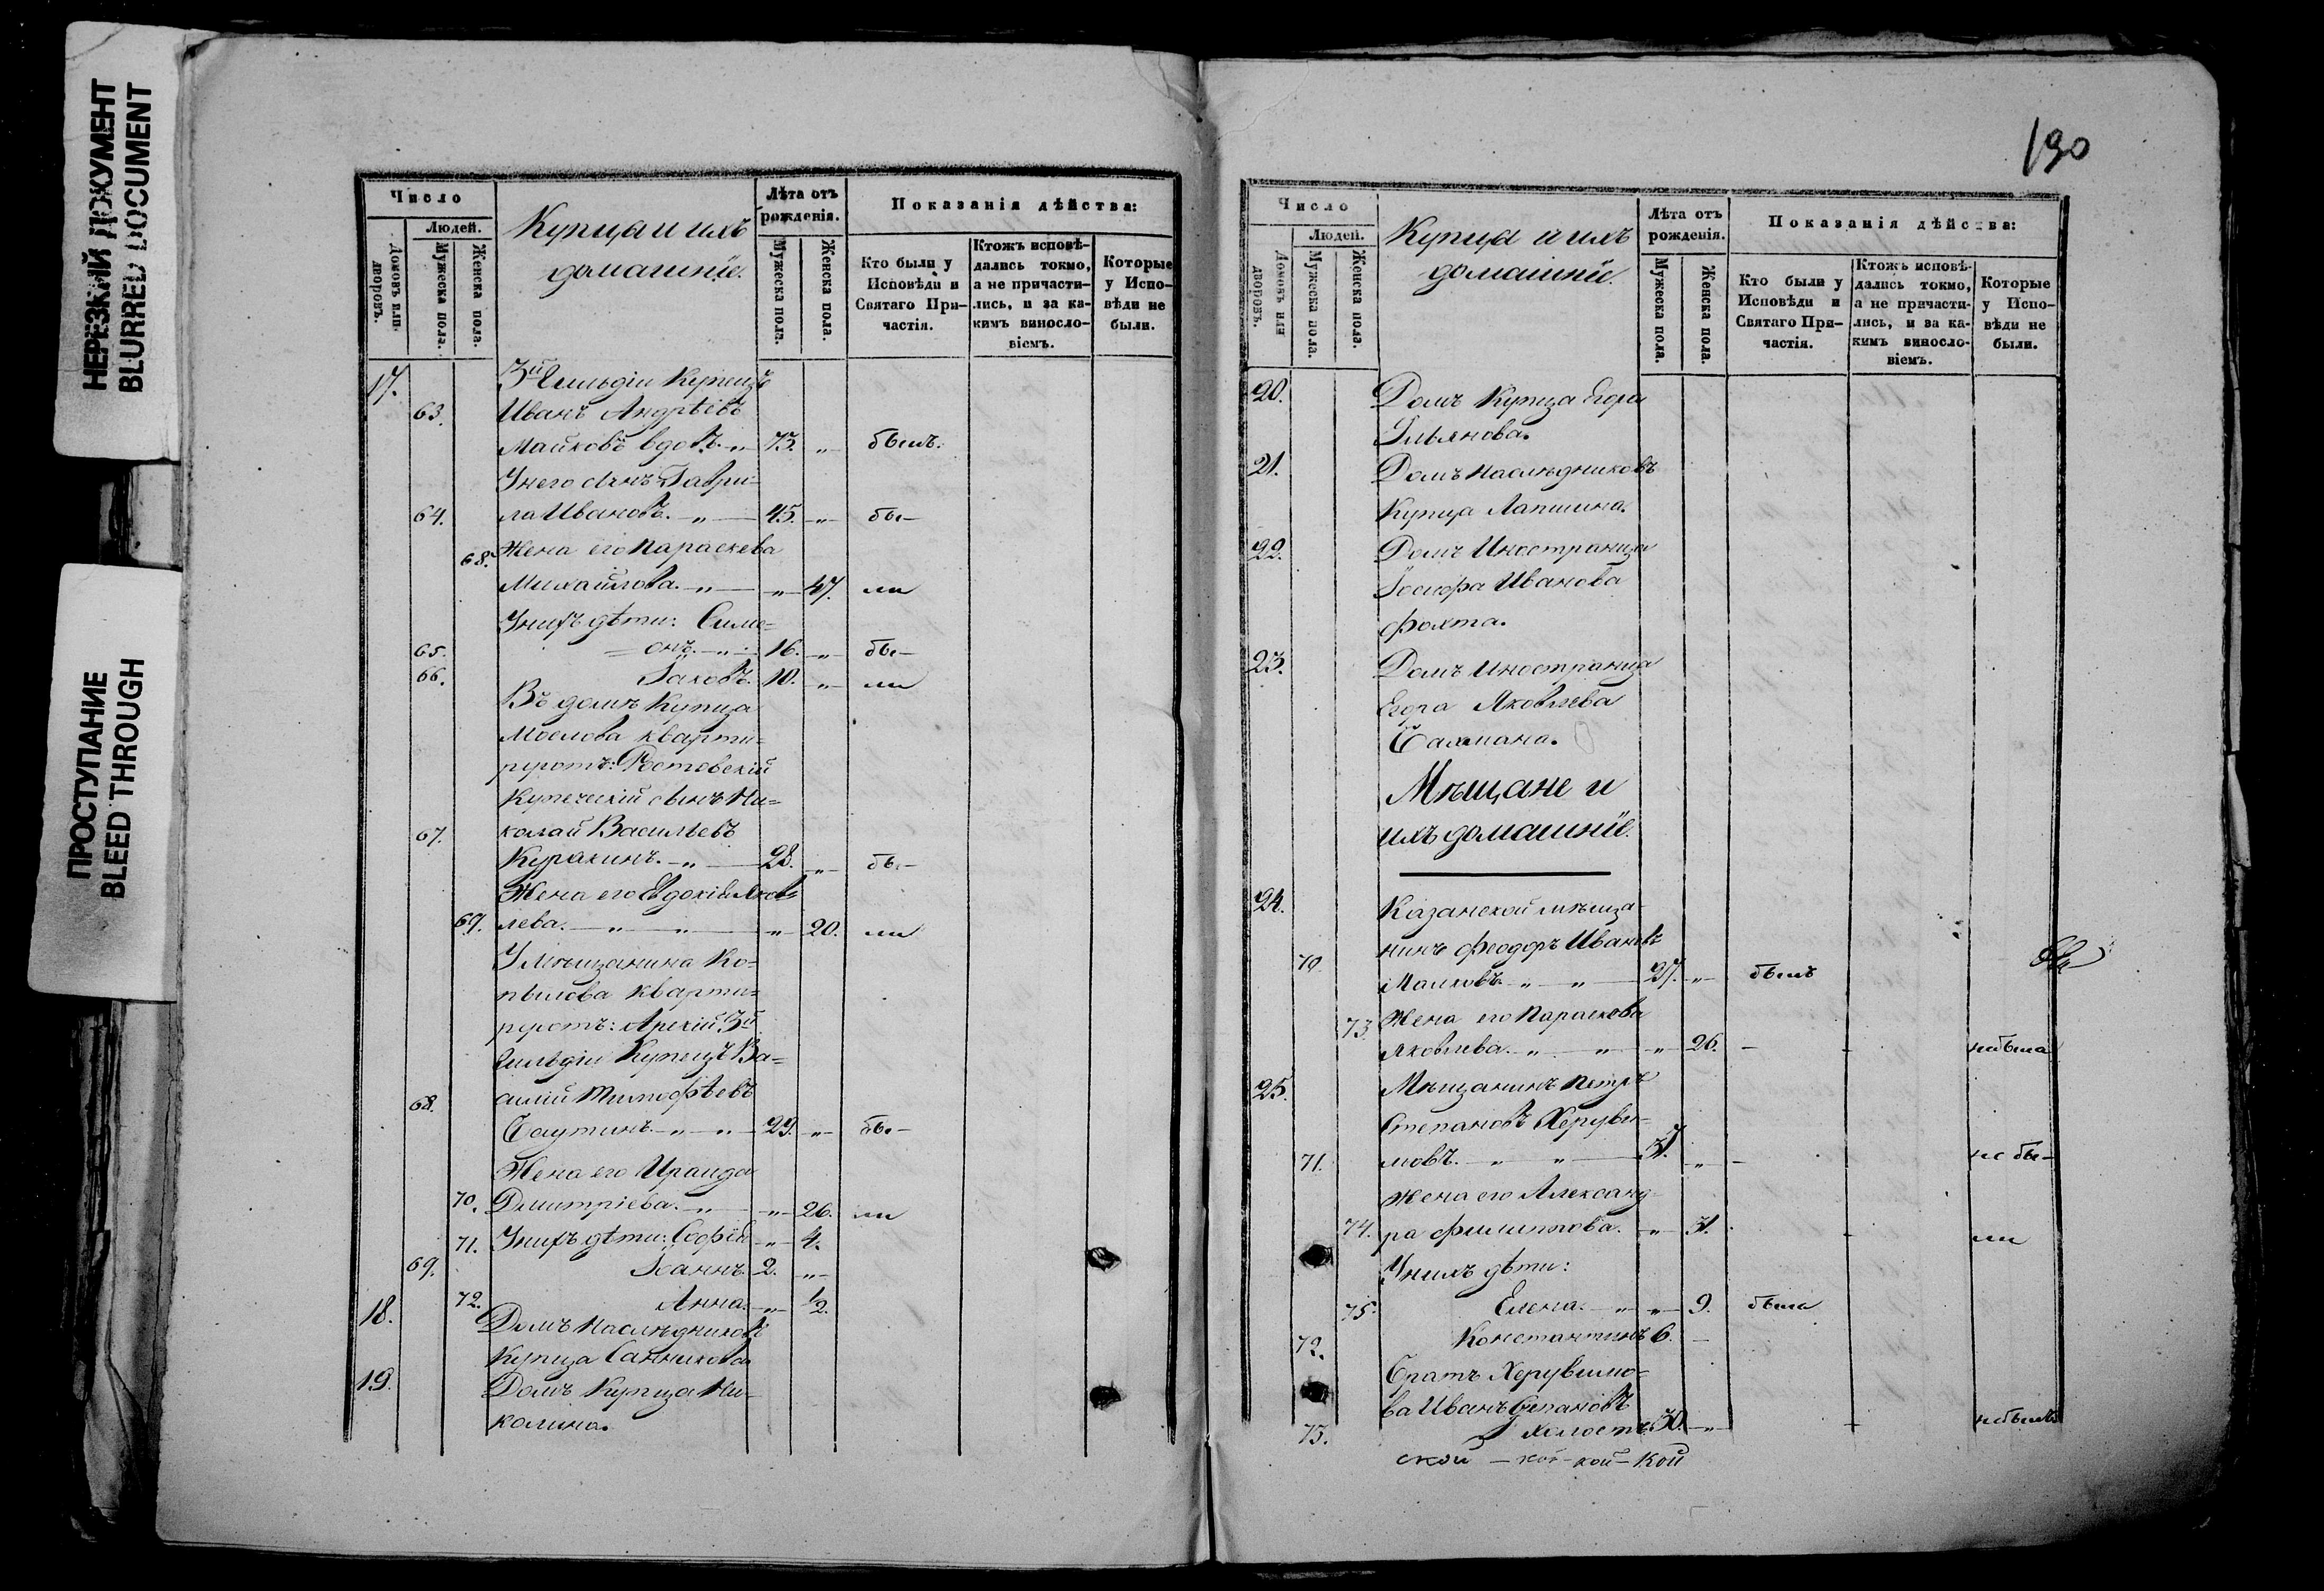 НЕРЕЗКИЙ ДОКУМЕНТ
BLURRED DOCUMENT
ПРОСТУПАНИЕ
BLEED THROUGH
Число
Людей.
Домовъ или дворовъ.
Мужеска пола.
Женска пола.
Купцы и ихъ
домашніе.
Лѣта отъ
рожденія.
Мужеска пола.
Женска пола.
Показанія дѣйства:
Кто были у
Исповѣди и
Святаго При-
частія.
Ктожъ исповѣ-
дались токмо,
а не причасти-
лись, и за ка-
кимъ виносло-
віемъ.
Которые
у Испо-
вѣди не
были.
17. 3й Гильдіи Купецъ
63. Иванъ Андрѣевъ
Майковъ вдовъ. „ 73. „ былъ.
У него сынъ Гаври-
64. ла Ивановъ. „ 45. „ бы-
68. Жена его Параскева
Михайлова. „ „ 47. ли
У нихъ дѣти: Симе=
65. онъ. „ 16. „ бы-
66. Іаковъ. 10. „ ли
Въ домѣ Купца
Маслова кварти=
руютъ: Ростовскій
Купеческій сынъ Ни=
67. колай Васильевъ
Куракинъ. „ 28. „ бы-
Жена его Евдокія Яков-
69. лева. „ „ „ 20. ли
У мѣщанина Ко-
пылова кварти=
руютъ: Арскій 3й
Гильдіи Купецъ Ва=
68. силій Тимофѣевъ
Баутинъ. „ „ 29. „ бы-
Жена его Ираида
70. Дмитріева. „ „ 26. ли
71. У нихъ дѣти: Софія „ 4.
69. Іоаннъ. 2. „
72. Анна. „ 1/2.
18. Домъ Наслѣдниковъ
Купца Санникова
19. Домъ Купца Ни-
колина.
190
Число
Людей.
Домовъ или дворовъ.
Мужеска пола.
Женска пола.
Купцы и ихъ
домашніе.
Лѣта отъ
рожденія.
Мужеска пола.
Женска пола.
Показанія дѣйства:
Кто были у
Исповѣди и
Святаго При-
частія.
Ктожъ исповѣ-
дались токмо,
а не причасти-
лись, и за ка-
кимъ виносло-
віемъ.
Которые
у Испо-
вѣди не
были.
20. Домъ Купца Егора
Ульянова.
21. Домъ Наслѣдниковъ
Купца Лапшина.
22. Домъ Иностранца
Іосифа Иванова
Фохта.
23. Домъ Иностранца
Егора Яковлева
Мѣщане и
ихъ домашніе.
24. Казанской мѣща-
70. нинъ Феодоръ Ивановъ
„ „ 27. „ былъ
73. Жена его Параскева
Яковлева. „ „ „ 26. - - не была
25. Мѣщанинъ Петръ
Степановъ Херуви-
71. мовъ. „ „ „ - не бы-
Жена его Александ-
74. ра Филиппова. „ 31. ли
У нихъ дѣти:
75. Елена. „ „ 9. была
72. Константинъ 6. -
Братъ Херувимо-
ва Иванъ Степановъ
73. холостъ 30. „ не былъ
ской - кой - кой - кой